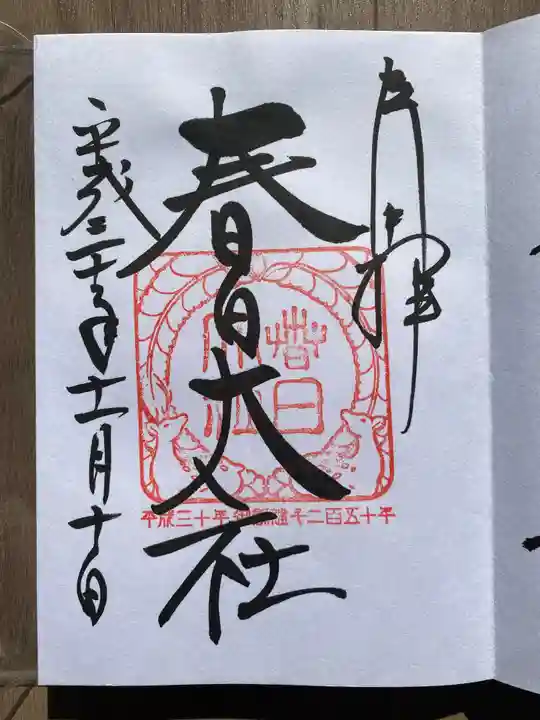 奉拝
春日大社
春日
大社
平成三十年 御創建千二百五十年
平成三十年十一月十日